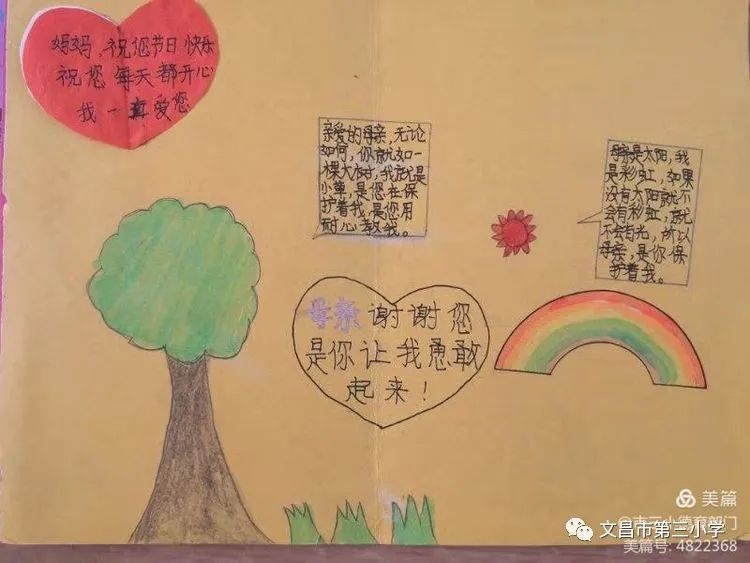 妈妈，祝您节日快乐
祝您每天都开心
我一真爱您
亲爱的母亲，无论
如何，你就如一
棵大树，我就是
小草，是您在保
护着我，是您用
耐心教我。
母亲是太阳，我
是彩虹，如果
没有太阳就不
会有彩虹，就
不会有光，所以
母亲，是你保
护着我。
母亲谢谢您
是你让我勇敢
起来！
美篇
文昌市第三小学
美篇号: 4822368